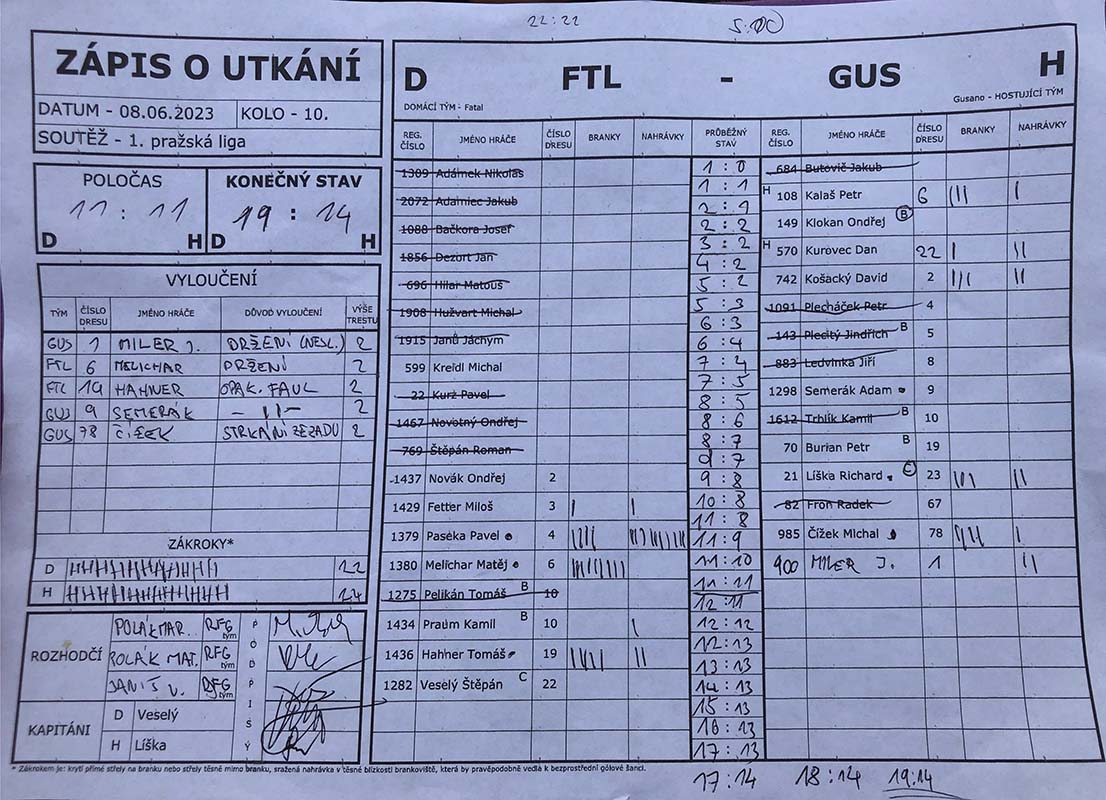 22:22
5:00
ZÁPIS O UTKÁNÍ
DATUM - 08.06.2023 KOLO - 10.
SOUTĚŽ - 1. pražská liga
POLOČAS KONEČNÝ STAV
11 : 11 19 : 14
D H D H
VYLOUČENÍ
TÝM ČÍSLO DRESU JMÉNO HRÁČE DŮVOD VYLOUČENÍ VÝŠE TRESTU
GUS 1 MILER J. DRŽENÍ (NESL.) 2
FTL 6 MELICHAR DRŽENÍ 2
FTL 19 HAHNER OPAK. FAUL 2
GUS 9 SEMERÁK - 11 - 2
GUS 78 ČÍŽEK STRKÁNÍ ZEZADU 2
ZÁKROKY*
D
H
ROZHODČÍ PODPISY
POLÁK MAR. RFG tým
POLÁK MAT. RFG tým
JANIŠ V. RFG tým
KAPITÁNI
D Veselý
H Líška
D FTL - GUS H
DOMÁCÍ TÝM - Fatal Gusano - HOSTUJÍCÍ TÝM
REG. ČÍSLO JMÉNO HRÁČE ČÍSLO DRESU BRANKY NAHRÁVKY PRŮBĚŽNÝ STAV REG. ČÍSLO JMÉNO HRÁČE ČÍSLO DRESU BRANKY NAHRÁVKY
1309 Adámek Nikolas
2072 Adamiec Jakub
1088 Bačkora Josef
1856 Dezort Jan
696 Hilar Matouš
1908 Hužvart Michal
1915 Janů Jáchym
599 Kreidl Michal
22 Kurz Pavel
1467 Novotný Ondřej
769 Štěpán Roman
1437 Novák Ondřej 2
1429 Fetter Miloš 3
1379 Paseka Pavel 4
1380 Melichar Matěj 6
1275 Pelikán Tomáš B 10
1434 Praum Kamil B 10
1436 Hahner Tomáš 19
1282 Veselý Štěpán C 22
1 : 0
1 : 1
2 : 1
2 : 2
3 : 2
4 : 2
5 : 2
5 : 3
6 : 3
6 : 4
7 : 4
7 : 5
8 : 5
8 : 6
8 : 7
9 : 7
9 : 8
10 : 8
11 : 8
11 : 9
11 : 10
11 : 11
12 : 11
12 : 12
12 : 13
13 : 13
14 : 13
15 : 13
16 : 13
17 : 13
17 : 14 18 : 14 19:14
684 Butovič Jakub
H 108 Kalaš Petr 6
149 Klokan Ondřej B
H 570 Kurovec Dan 22
742 Košacký David 2
1091 Plecháček Petr 4
143 Plecitý Jindřich B 5
883 Ledvinka Jiří 8
1298 Semerák Adam 9
1612 Trhlík Kamil B 10
70 Burian Petr B 19
21 Líška Richard C 23
82 Fron Radek 67
985 Čížek MIchal 78
900 MILER J. 1
* Zákrokem je: krytí přímé střely na branku nebo střely těsně mimo branku, sražená nahrávka v těsné blízkosti brankoviště, která by pravěpodobně vedla k bezprostřední gólové šanci.